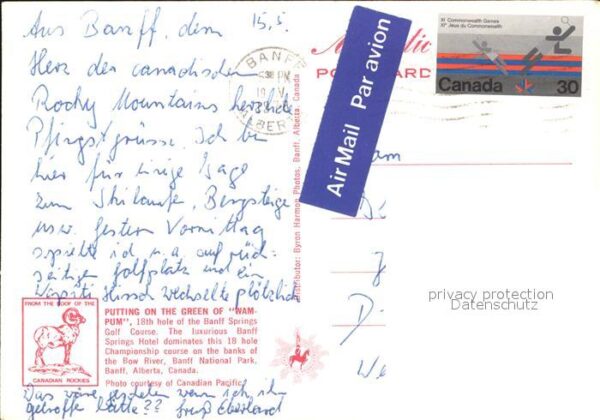 Aus Banff, dem 15.5.
Herz der canadischen
Rocky Mountains herzliche
Pfingstgrüsse. Ich bin
hier für einige Tage
zum Skilaufen, Bergsteigen
usw. gestern Vormittag
spielte ich u.a. auf rück-
seitigen Golfplatz und ein
Wapiti Hirsch wechselte plötzlich
Das wäre gewesen wenn ich ihn
getroffen hätte?? Gruß
BANFF
PM
19 V
ALBERTA
POSTCARD
Air Mail Par avion
XI Commonwealth Games
XIes Jeux du Commonwealth
Canada 30
Distributor: Byron Harmon Photos, Banff, Alberta, Canada
privacy protection
Datenschutz
FROM THE ROOF OF THE
CANADIAN ROCKIES
PUTTING ON THE GREEN OF "WAM-
PUM", 18th hole of the Banff Springs
Golf Course. The luxurious Banff
Springs Hotel dominates this 18 hole
Championship course on the banks of
the Bow River, Banff National Park,
Banff, Alberta, Canada.
Photo courtesy of Canadian Pacific